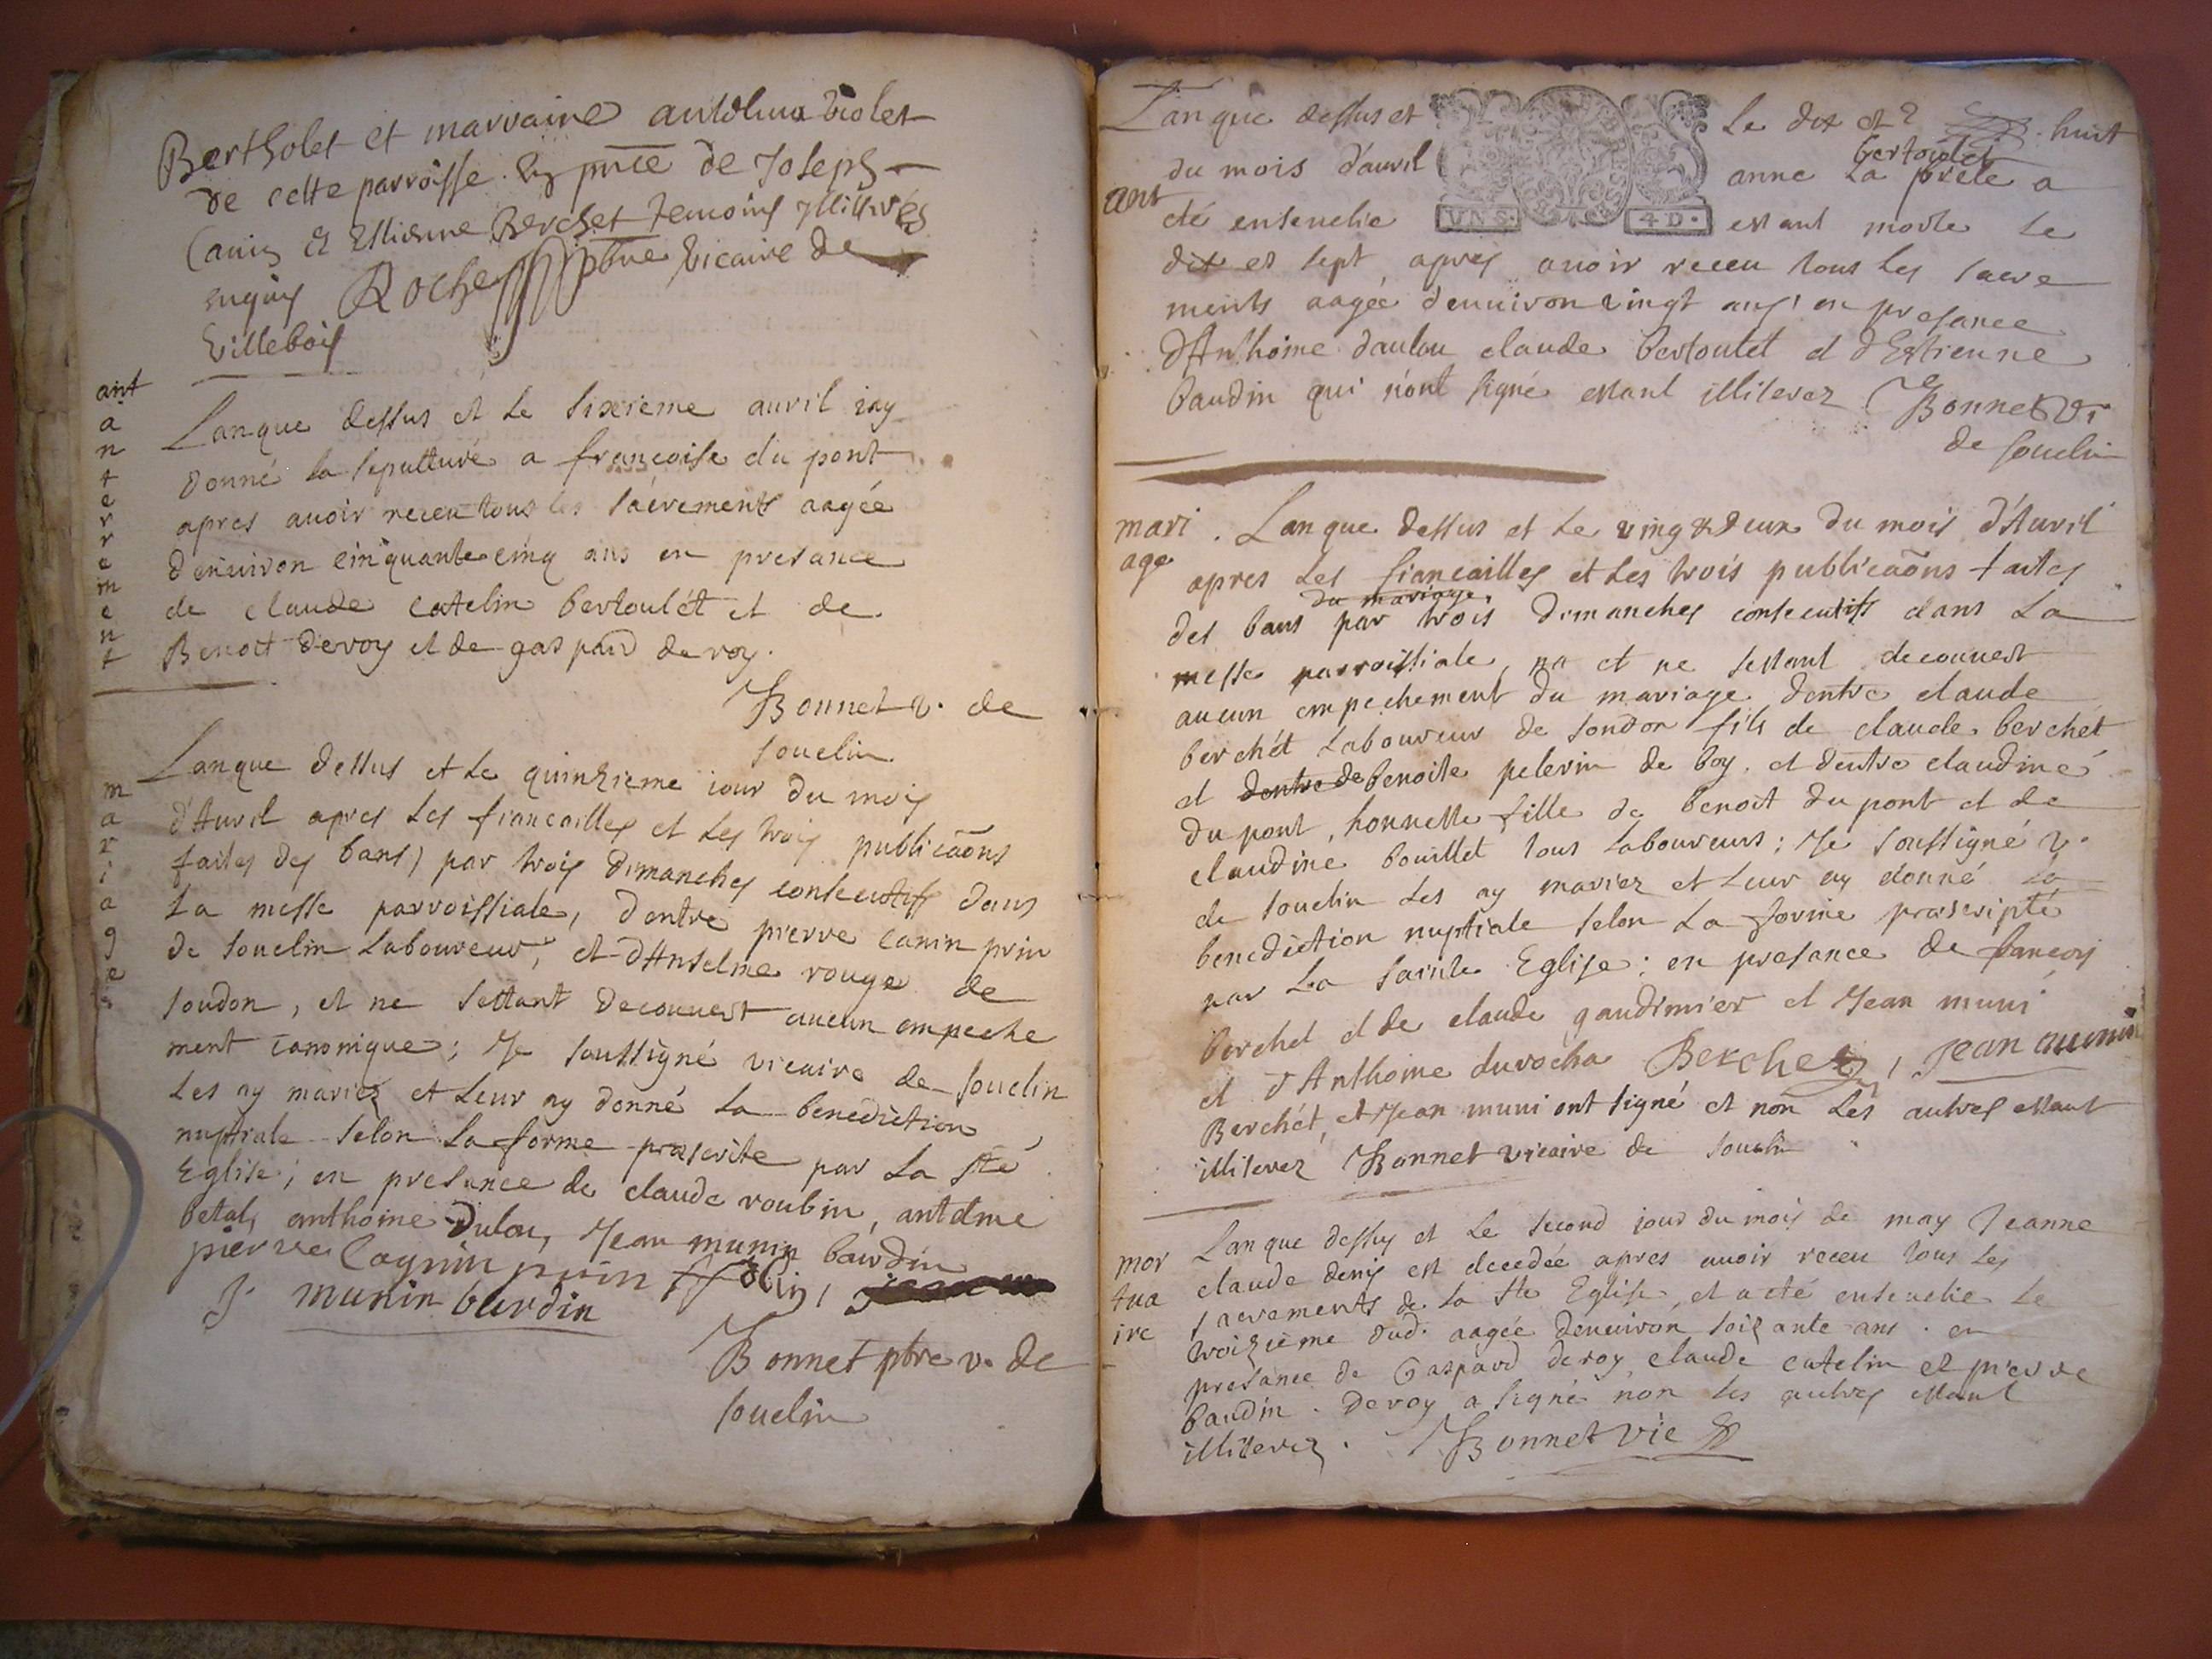 Bertholet et marraine
de cette parroisse. En pnce de Joseph
Canin et Estienne Berchet temoins illitres
enquis Roche pbtre vicaire de
villebois
ant
a
n
t
e
r
r
e
m
e
n
t
Lan que dessus et le sixieme auril iay
donné la sepulture a francoise du pont
apres auoir receu tous les sacrements aagée
d'enuiron cinquante cinq ans en presance
de claude catelin bertoulét et de
Benoit deroy et de gaspard deroy.
Bonnet v. de
souclin
m
a
r
i
a
g
e
s
Lan que dessus et le quinzieme iour du mois
d'Auril apres les fiancailles et les trois publicaōns
faites des bans, par trois dimanches consecutifs dans
la messe parroissiale, dentre pierre canin prin
de souclin laboureur, et d'Anselme rouge de
soudon, et ne sestant decouuert aucun empeche
ment canonique; Je soussigné vicaire de souclin
les ay mariez et leur ay donné la benediction
nuptiale selon la forme prascrite par la ste
Eglise; en presance de claude roubin, antelme
betal, anthoine dulau, Jean munin bardin
pierre Cagnin prin
J. munin burdin
Bonnet pbre v. de
souclin
Lan que dessus et le dix et huit
du mois d'auril anne bertoulet la prele a
ant
eté enseuelie VN S. 4 D. estant morte le
dix et sept apres auoir receu tous les sacre
ments aagée denuiron vingt ans en presance
d'Anthoine daulau claude bertoulet et d'Estienne
baudin qui n'ont signé estant illiterez Bonnet vi
de souclin
mari
age
Lan que dessus et le vingt deux du mois d'Auril
apres les fiancailles et les trois publicaōns faites
du mariage
des bans par trois dimanches consecutifs dans la
messe parroissiale, et ne sestant decouuert
aucun empechement du mariage dentre claude
berchét laboureur de soudon fils de claude berchét
et dentre de benoite pelerin de boy. et dentre claudine
du pont, honneste fille de benoit du pont et de
claudine bouillet tous laboureurs; Je soussigné v.
de souclin les ay mariez et leur ay donné la
benediction nuptiale selon la forme prascripte
par la sainte Eglise; en presance de francois
berchet et de claude gaudimier et Jean muni
et d'Anthoine durocha Berchet, Jean munin
Berchét, et Jean muni ont signé et non les autres estant
illiterez Bonnet vicaire de souclin
mor
tua
ire
Lan que dessus et le second iour du mois de may Jeanne
claude denis est decedée apres auoir receu tous les
sacrements de la ste Eglise, et a eté enseuelie le
troisieme dud. aagée denuiron soixante ans. en
presance de Gaspard deroy claude catelin et pierre
baudin. deroy a signé non les autres estant
illiterez. Bonnet vic